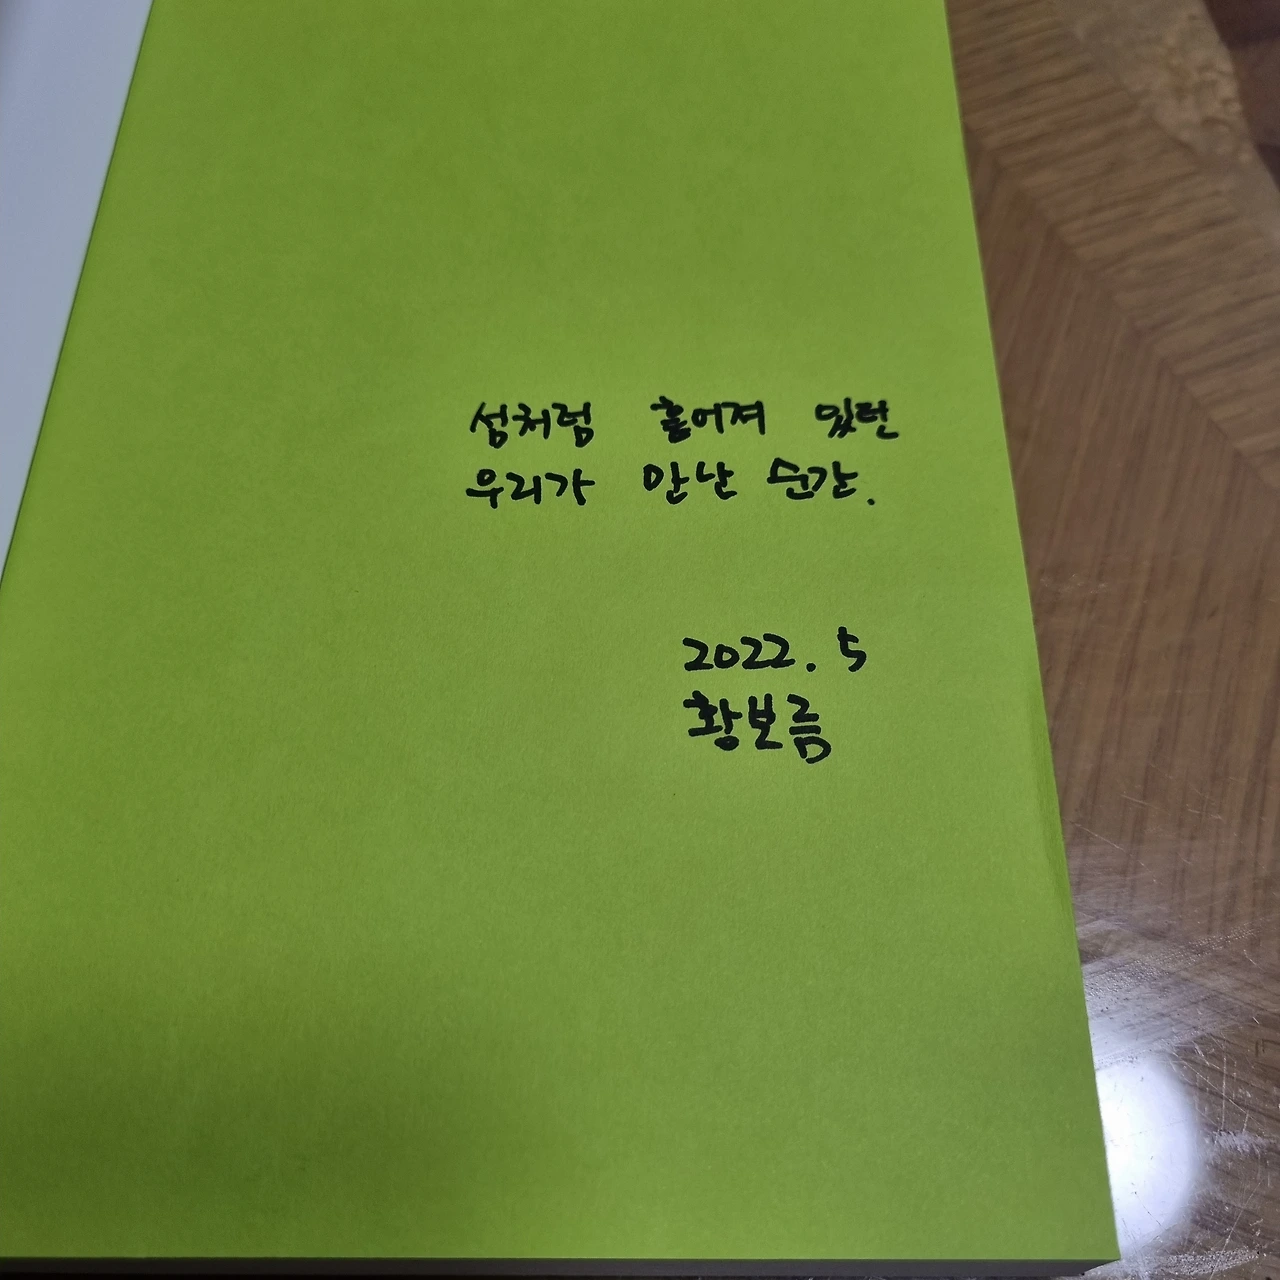 섬처럼 흩어져 있던
우리가 만난 순간.
2022. 5
황보름